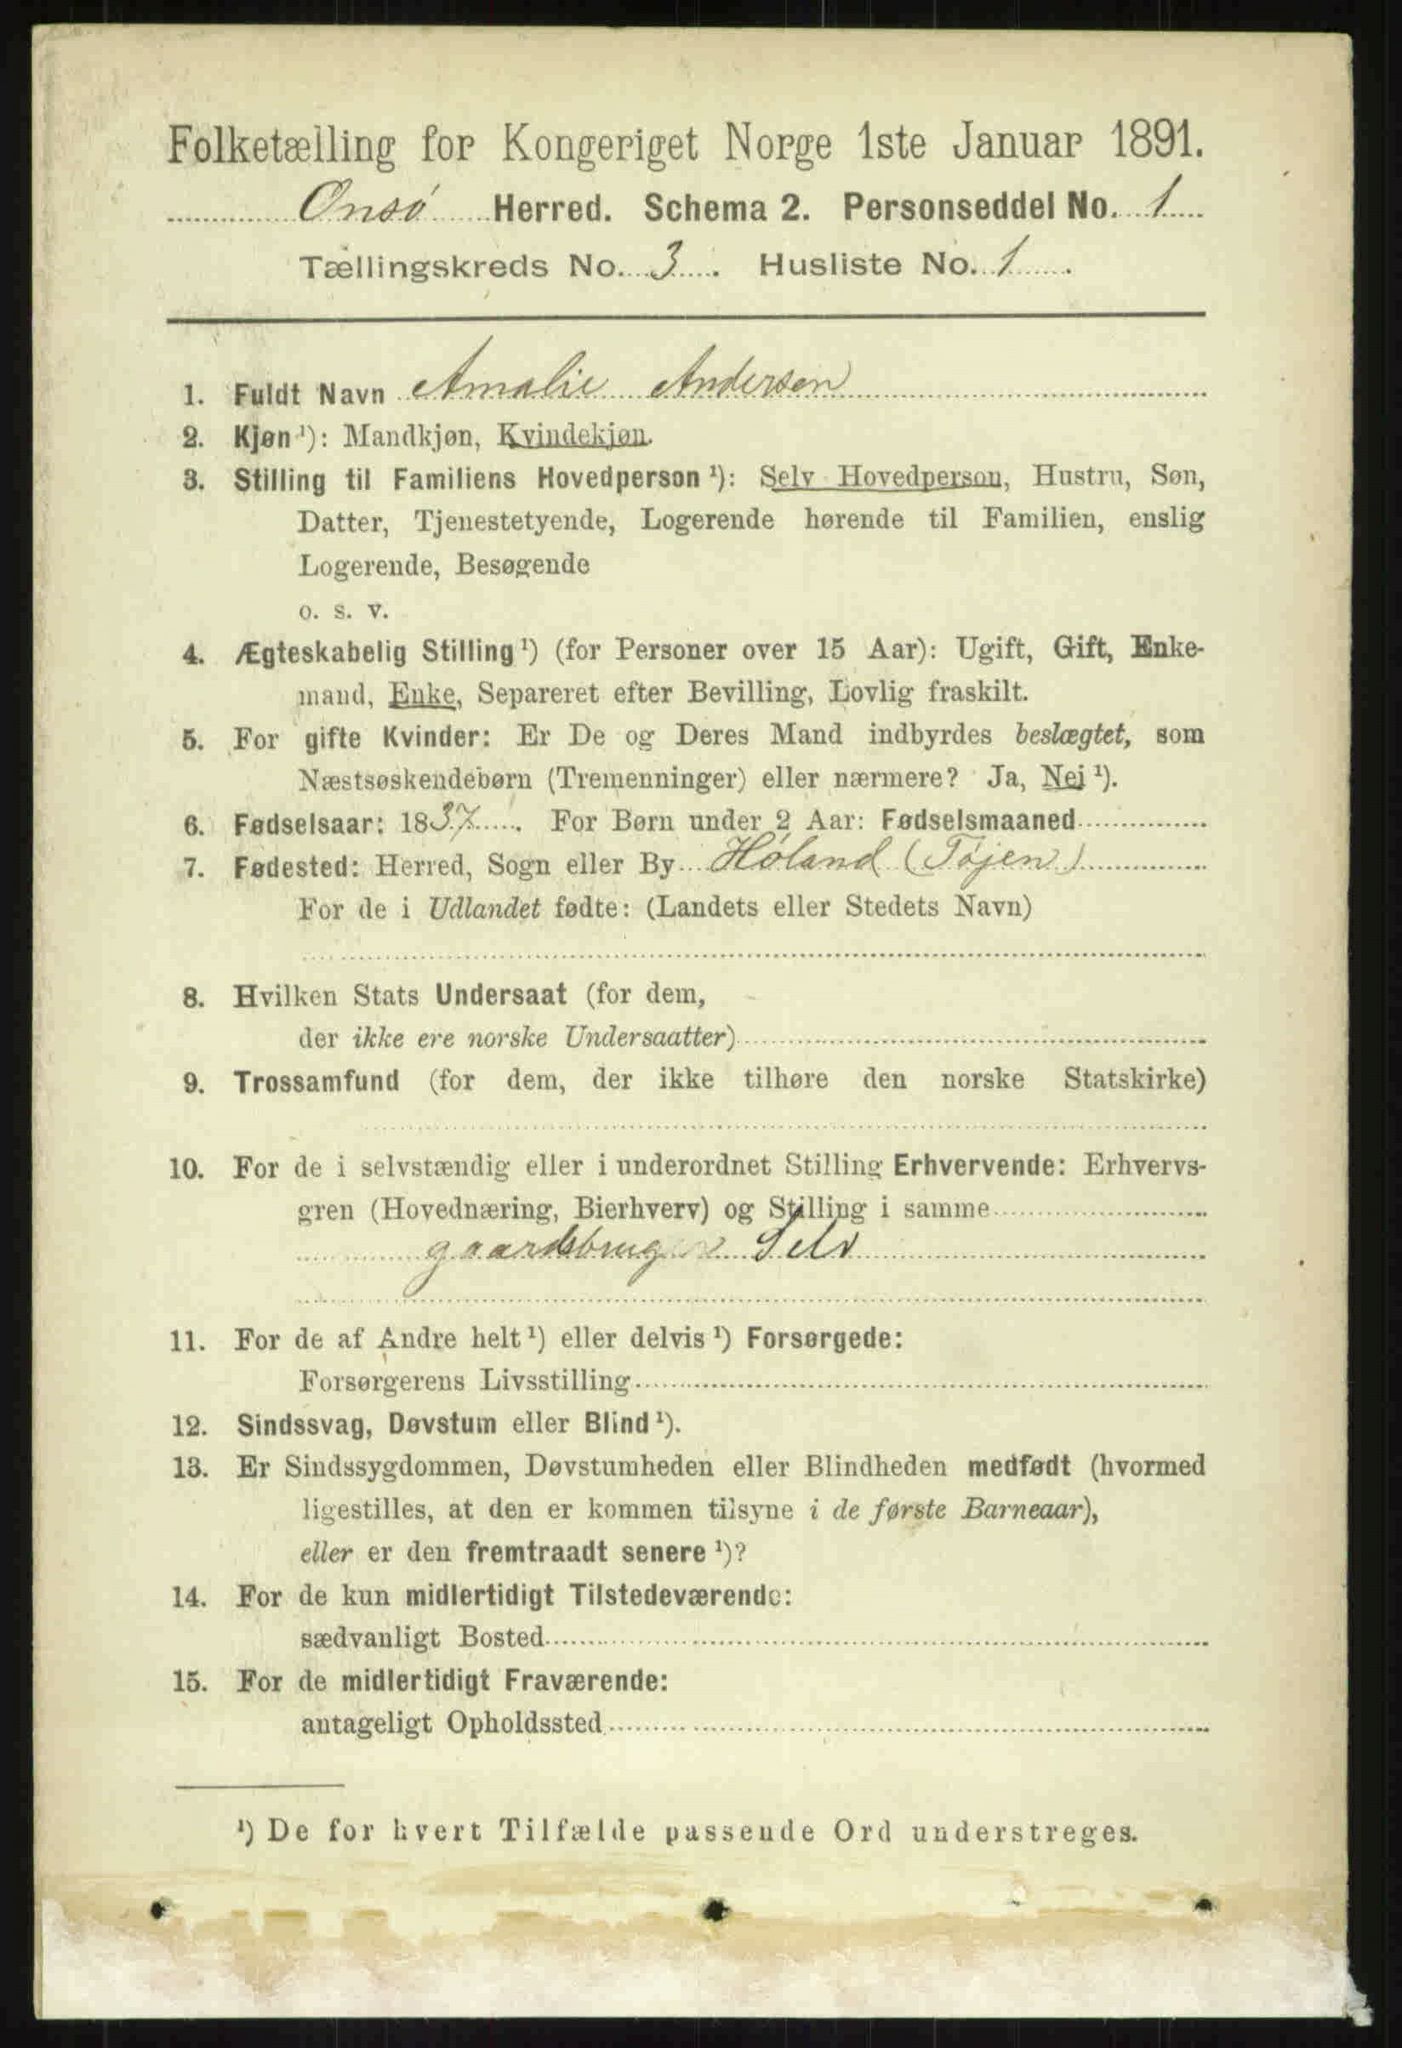 Folketælling for Kongeriget Norge 1ste Januar 1891.
Onsø Herred. Schema 2. Personseddel No. 1
Tællingskreds No. 3. Husliste No. 1.
1. Fuldt Navn Amalie Andersen
2. Kjøn ¹): Mandkjøn, Kvindekjøn.
3. Stilling til Familiens Hovedperson ¹): Selv Hovedperson, Hustru, Søn,
Datter, Tjenestetyende, Logerende hørende til Familien, enslig
Logerende, Besøgende
o. s. v.
4. Ægteskabelig Stilling ¹) (for Personer over 15 Aar): Ugift, Gift, Enke-
mand, Enke, Separeret efter Bevilling, Lovlig fraskilt.
5. For gifte Kvinder: Er De og Deres Mand indbyrdes beslægtet, som
Næstsøskendebørn (Tremenninger) eller nærmere? Ja, Nej ¹).
6. Fødselsaar: 1837. For Børn under 2 Aar: Fødselsmaaned
7. Fødested: Herred, Sogn eller By Høland (Tøjen)
For de i Udlandet fødte: (Landets eller Stedets Navn)
8. Hvilken Stats Undersaat (for dem,
der ikke ere norske Undersaatter)
9. Trossamfund (for dem, der ikke tilhøre den norske Statskirke)
10. For de i selvstændig eller i underordnet Stilling Erhvervende: Erhvervs-
gren (Hovednæring, Bierhverv) og Stilling i samme
gaardsbruger Selv
11. For de af Andre helt ¹) eller delvis ¹) Forsørgede:
Forsørgerens Livsstilling
12. Sindssvag, Døvstum eller Blind ¹).
13. Er Sindssygdommen, Døvstumheden eller Blindheden medfødt (hvormed
ligestilles, at den er kommen tilsyne i de første Barneaar),
eller er den fremtraadt senere ¹)?
14. For de kun midlertidigt Tilstedeværende:
sædvanligt Bosted
15. For de midlertidigt Fraværende:
antageligt Opholdssted
¹) De for hvert Tilfælde passende Ord understreges.